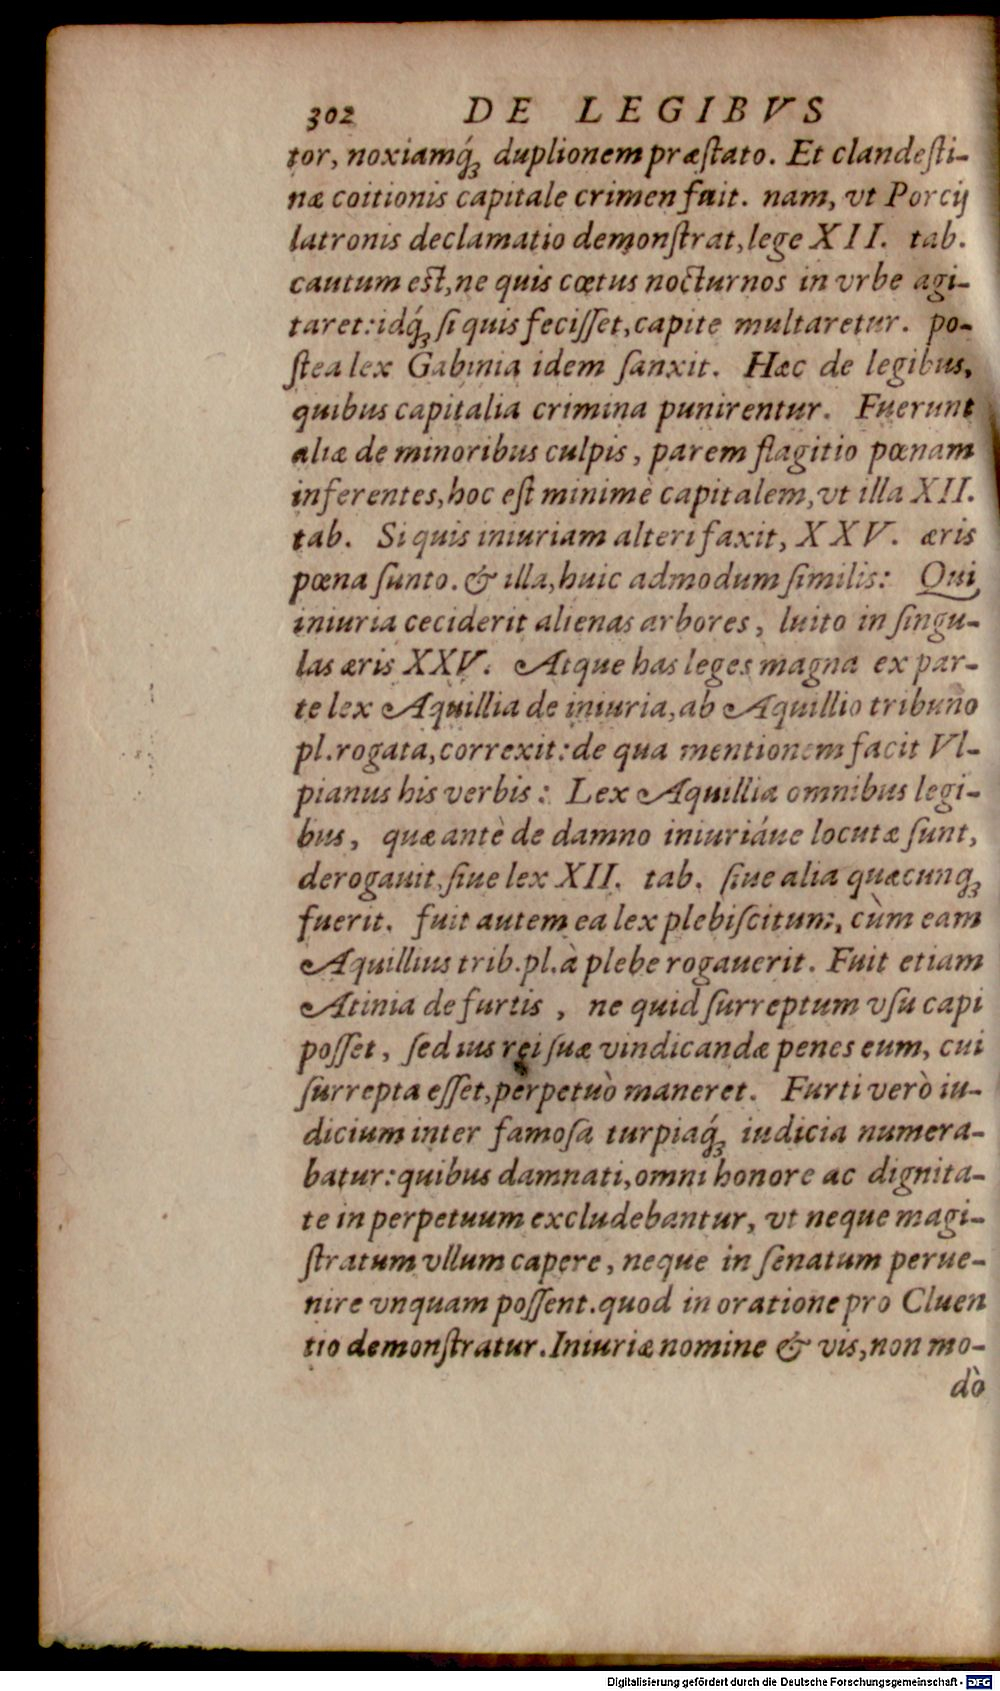 302 DE LEGIBVS
tor, noxiamq́ꝫ duplionem præſtato. Et clandeſti-
næ coitionis capitale crimen fuit. nam, vt Porcij
latronis declamatio demonſtrat, lege XII. tab.
cautum eſt, ne quis cœtus nocturnos in vrbe agi-
taret: idq́ꝫ ſi quis feciſſet, capite multaretur. po-
ſtea lex Gabinia idem ſanxit. Hæc de legibus,
quibus capitalia crimina punirentur. Fuerunt
aliæ de minoribus culpis, parem flagitio pœnam
inferentes, hoc eſt minimè capitalem, vt illa XII.
tab. Si quis iniuriam alteri faxit, XXV. æris
pœna ſunto. & illa, huic admodum ſimilis: Qui
iniuria ceciderit alienas arbores, luito in ſingu-
las æris XXV. Atque has leges magna ex par-
te lex Aquillia de iniuria, ab Aquillio tribuno
pl. rogata, correxit: de qua mentionem facit Vl-
pianus his verbis: Lex Aquillia omnibus legi-
bus, quæ antè de damno iniuriáue locutæ ſunt,
derogauit, ſiue lex XII. tab. ſiue alia quæcunqꝫ
fuerit. fuit autem ea lex plebiſcitum, cùm eam
Aquillius trib. pl. à plebe rogauerit. Fuit etiam
Atinia de furtis, ne quid ſurreptum vſu capi
poſſet, ſed ius rei ſuæ vindicandæ penes eum, cui
ſurrepta eſſet, perpetuò maneret. Furti verò iu-
dicium inter famoſa turpiaq́ꝫ iudicia numera-
batur: quibus damnati, omni honore ac dignita-
te in perpetuum excludebantur, vt neque magi-
ſtratum vllum capere, neque in ſenatum perue-
nire vnquam poſſent. quod in oratione pro Cluen
tio demonſtratur. Iniuriæ nomine & vis, non mo-
dò
Digitalisierung gefördert durch die Deutsche Forschungsgemeinschaft - DFG